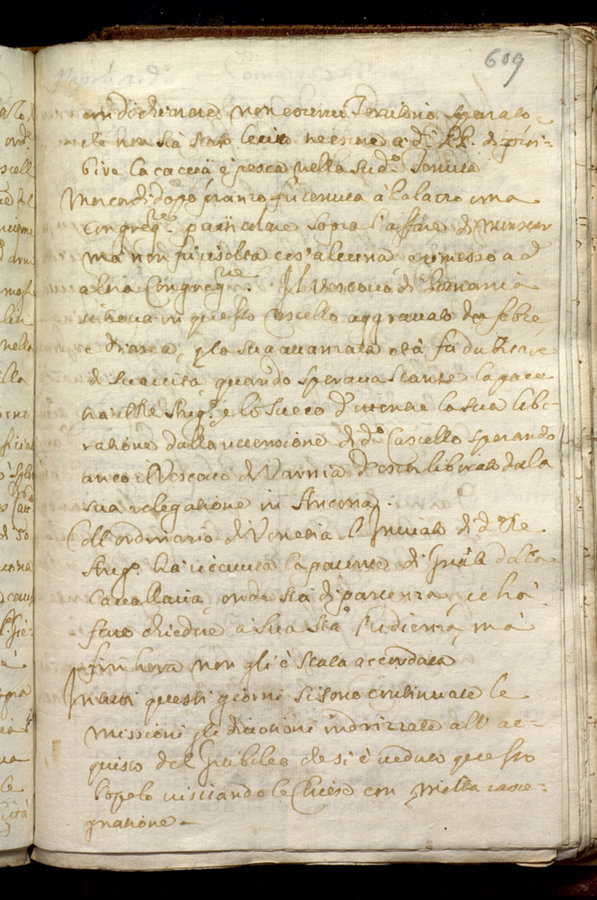 609
non essere Territorio separato e
che non sia stato lecito ne essere a d.i PP. di proi-
bire la caccia e pesca nella sud.a Tenuta
Mercordi dopo pranzo fù tenuta à Palazzo una
Congreg.ne particolare sopra l'affare di Munster
ma non fù risoluta cos'alcuna e rimesso ad
altra Congreg.ne. Il Vescovo di
si trova in questo Castello aggravato da febre
e diarea, e p la sua avanzata età fà dubitare
di sua vita, quando sperava stante la pace
trà il Rè Aug.o e lo Sueco d'ottenere la sua libe-
ratione dalla di d.o Castello sperando
anco il Vescovo di Varmia d'esser liberato dalla
sua relegatione in Ancona.
Coll'ordinario di Venetia l'Inviato di d.o Rè
Aug.o hà ricevuta la patente di dalla
Cavalleria, onde stà di partenza, e hà
fatto chiedere a Sua Stà l'udienza, mà
fin hora non gli è stata accordata
In tutti questi giorni si sono continuate le
missioni, e le divotioni indrizzate all'ac-
quisto del Giubileo che si è veduto questo
Popolo visitando le Chiese con molta rasse-
gnatione.